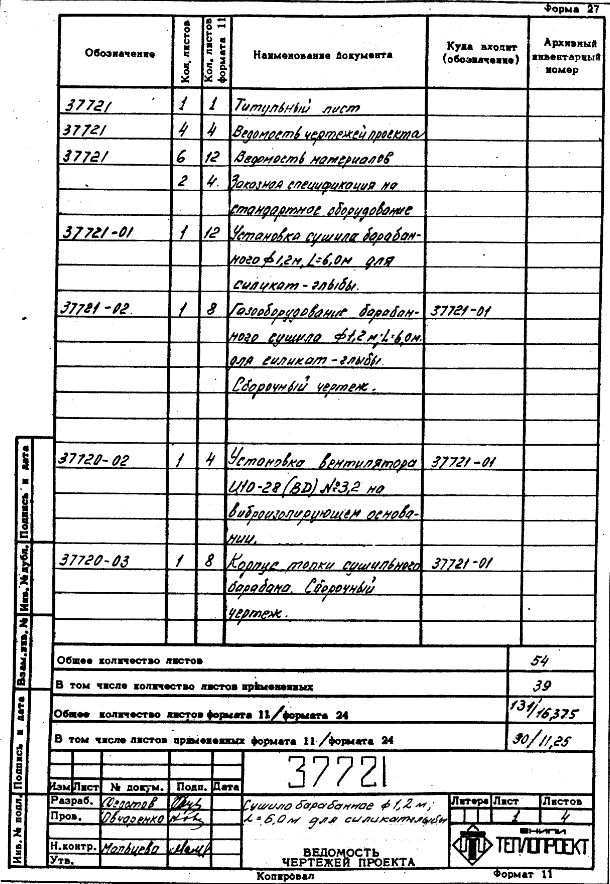 Форма 27
Обозначение Кол. листов Кол. листов формата 11 Наименование документа Куда входит (обозначение) Архивный инвентарный номер
37721 1 1 Титульный лист
37721 4 4 Ведомость чертежей проекта
37721 6 12 Ведомость материалов
2 4 Заказная спецификация на
стандартное оборудование
37721-01 1 12 Установка сушила барабан-
ного ф1,2м, L=6,0м для
силикат-глыбы.
37721-02 1 8 Газооборудование барабан- 37721-01
ного сушила ф1,2м; L=6,0м
для силикат-глыбы.
Сборочный чертеж.
37720-02 1 4 Установка вентилятора 37721-01
Ц10-28 (ВД) №3,2 на
виброизолирующем основа-
нии.
37720-03 1 8 Корпус топки сушильного 37721-01
барабана. Сборочный
чертеж.
Общее количество листов 54
В том числе количество листов примененных 39
Общее количество листов формата 11/формата 24 131/16,375
В том числе листов примененных формата 11/формата 24 90/11,25
37721
Изм Лист № докум. Подп. Дата
Разраб.
Пров. Овчаренко
Н.контр. Мальцева
Утв.
Сушило барабанное ф1,2м;
L=6,0м для силикатглыбы
ВЕДОМОСТЬ
ЧЕРТЕЖЕЙ ПРОЕКТА
Литера Лист Листов
1 4
ВНИПИ
ТЕПЛОПРОЕКТ
Копировал Формат 11
Инв. № подл. Подпись и дата Взам.инв. № Инв. № дубл. Подпись и дата